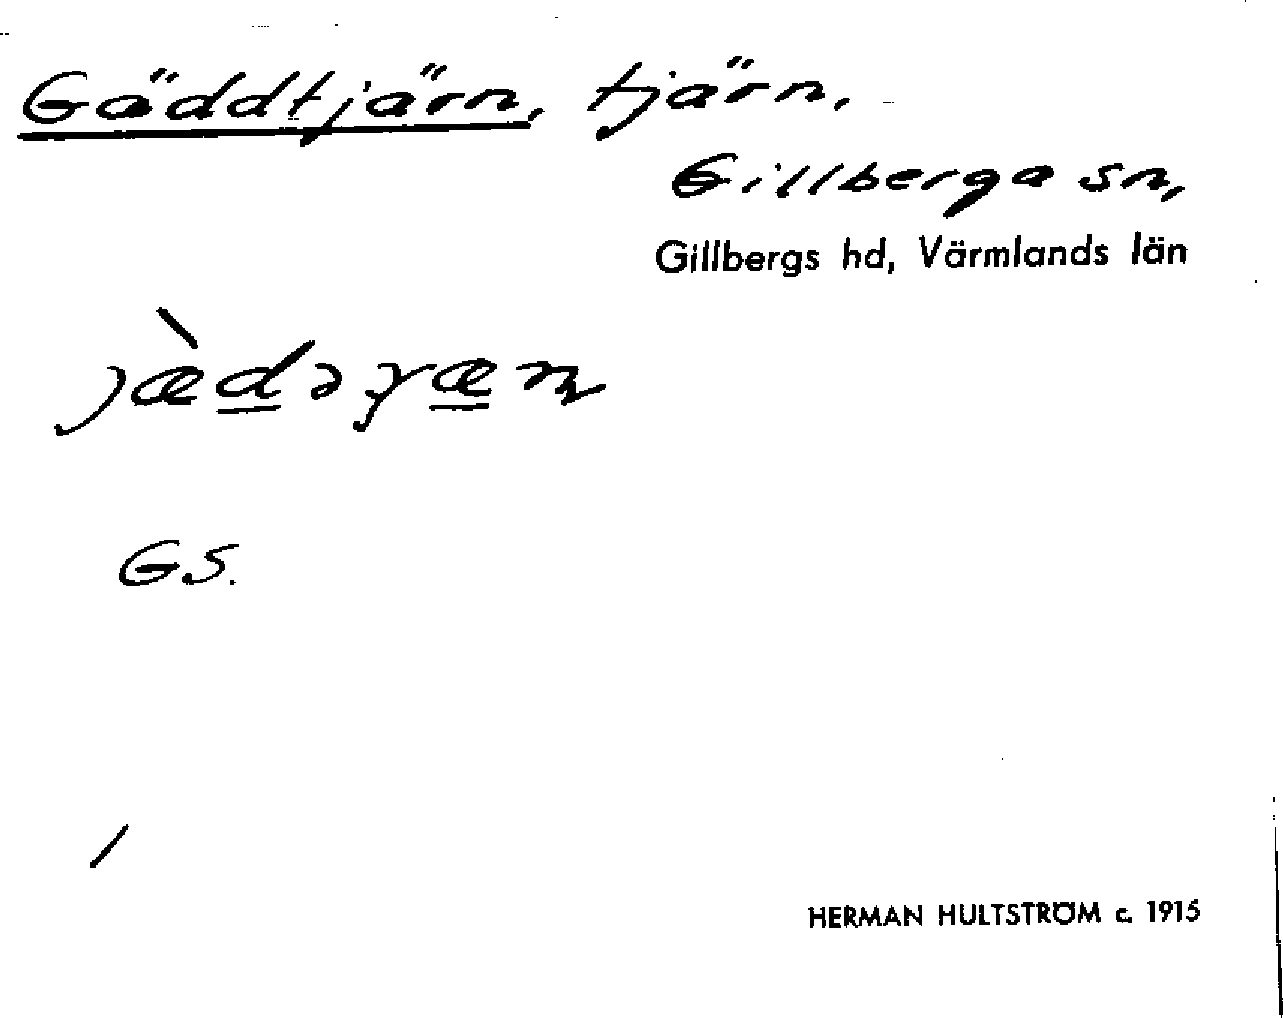 Gäddtjärn, tjärn,
Gillberga sn,
Gillbergs hd, Värmlands län
GS.
/
HERMAN HULTSTRÖM c. 1915